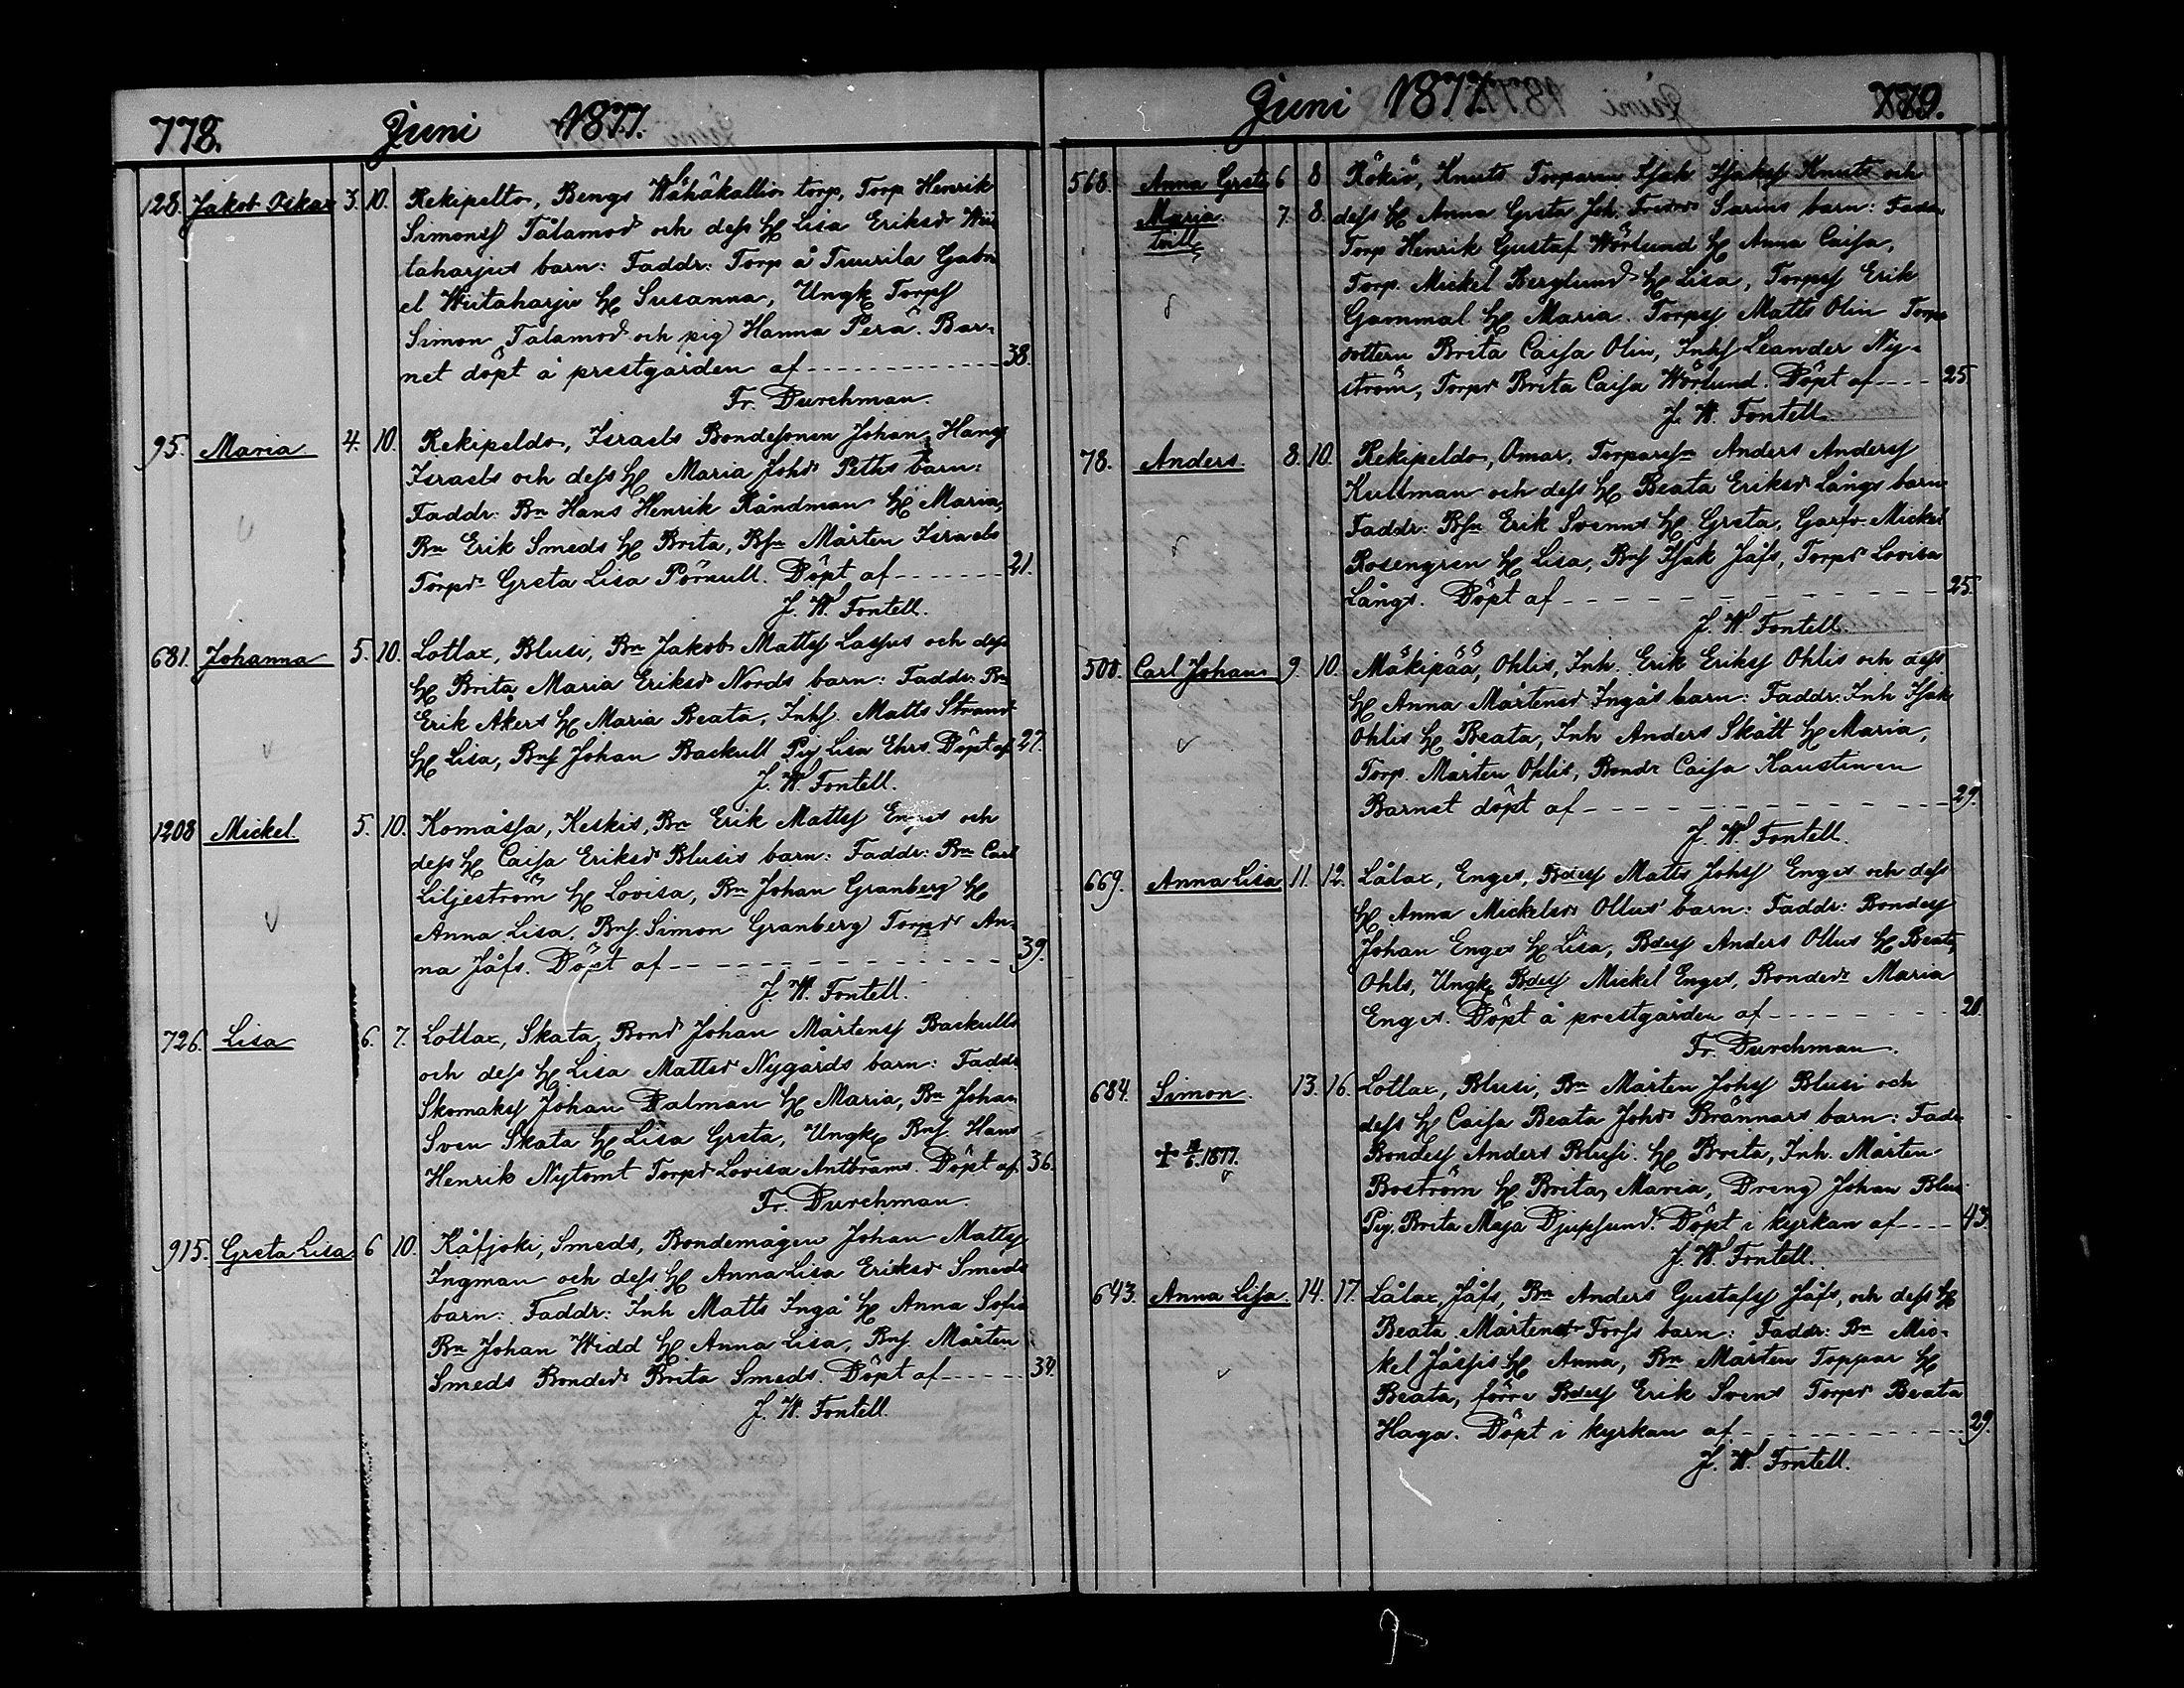 778. Juni 1877.
128. Jakob Oskar 3. 10. Rekipelto, Bengs Wähäkallio torp, Torp Henrik
Simonss Tålamod och dess H. Lisa Eriksdr Wii
taharjus barn: Faddr: Torp å Tuurila Gabri
el Wiitaharju H. Susanna, Ungk Torps
Simon Tålamod och pig Hanna Perä. Bar-
net döpt å prestgården af 38.
Fr. Durchman.
95. Maria 4. 10. Rekipeldo, Israels Bondesonen Johan Hanss
Israels och dess H. Maria Johdr Peths barn:
Faddr: Bn Hans Henrik Råndman H. Maria,
Bn Erik Smeds H. Brita, Bsn Mårten Israels
Torpdr Greta Lisa Pörnull. Döpt af 21.
J. W. Fontell.
681. Johanna 5. 10. Lotlax, Blusi, Bn Jakob Mattss Lassus och dess
H. Brita Maria Eriksdr Nords barn: Faddr: Bn
Erik Akers H. Maria Beata, Inhs. Matts Strand
H. Lisa, Bns Johan Backull Pig Lisa Ehrs. Döpt af 27.
J. W. Fontell.
1208 Mickel. 5. 10. Komåssa, Keskis, Bn Erik Mattss Enges och
dess H. Caisa Eriksdr Blusis barn: Faddr: Bn Carl
Liljeström H. Lovisa, Bn Johan Granberg H.
Anna Lisa, Bns. Simon Granberg Torpdr An-
na Jåfs. Döpt af 39.
J. W. Fontell.
726. Lisa 6. 7. Lotlax, Skata, Bond Johan Mårtenss Backulls
och dess H. Lisa Mattsdr Nygårds barn: Faddr
Skomaks Johan Dalman H. Maria, Bn Johan
Sven Skata H. Lisa Greta, Ungk Bns. Hans
Henrik Nytomt Torpdr Lovisa Antbrams. Döpt af 36.
Fr. Durchman.
915. Greta Lisa 6 10. Kåfjoki, Smeds, Bondemågen Johan Mattss
Ingman och dess H. Anna Lisa Eriksdr Smeds
barn: Faddr: Inh Matts Ingå H. Anna Sofia
Bn Johan Widd H. Anna Lisa, Bns. Mårten
Smeds Bondedr Brita Smeds. Döpt af 34.
J. W. Fontell.
Juni 1877. 779.
568. Anna Greta 6 8 Rökiö, Knuts Torparen Isak Isakss Knuts och
Maria 7. 8. dess H. Anna Greta Joh. Sarins barn: Fadd
tvill. Torp Henrik Gustaf Wörlund H. Anna Caisa,
Torp. Mickel Berglund H. Lisa, Torps Erik
Gammal H. Maria. Torps. Matts Olin Torp
dottern Brita Caisa Olin, Inhs Leander Ny-
ström, Torpdr Brita Caisa Wörlund. Döpt af 25.
J. W. Fontell.
78. Anders. 8. 10. Rekipeldo, Omar, Torparesn Anders Anderss
Kullman och dess H. Beata Eriksdr Långs barn
Faddr: Bsn Erik Svenns H. Greta, Garfv. Mickel
Rosengren H. Lisa, Bns Isak Jåfs, Torpdr Lovisa
Långs. Döpt af 25.
J. W. Fontell.
500. Carl Johan 9. 10. Mäkipää, Ohlis, Inh. Erik Erikss Ohlis och dess
H. Anna Mårtensdr Ingås barn: Faddr: Inh Isak
Ohlis H. Beata, Inh Anders Skått H. Maria,
Torp. Mårten Ohlis, Bondr Caisa Kaustinen
Barnet döpt af 29.
J. W. Fontell.
669. Anna Lisa 11. 12. Lålax, Enges, Bdess Matts Johss Enges och dess
H. Anna Mickelsdr Ollus' barn: Faddr: Bondes
Johan Enges H. Lisa, Bdess Anders Ollus H. Beata,
Ohls, Ungk Bdess Mickel Enges, Bondedr Maria
Enges. Döpt å prestgården af 20.
Fr. Durchman.
684. Simon. 13. 16. Lotlax, Blusi, Bn Mårten Johss Blusi och
dess H. Caisa Beata Johdr Brännars barn: Fadd
Bondes Anders Blusi. H. Brita, Inh. Mårten
6.1877. Boström H. Brita Maria, Dreng Johan Blusi
Pig. Brita Maja Djupsund. Döpt i kyrkan af 43.
J. W. Fontell.
643. Anna Lisa. 14. 17. Lålax, Jåfs, Bn Anders Gustafss Jåfs, och dess H.
Beata Mårtensdr Forss barn: Faddr: Bn Mic-
kel Jåssis H. Anna, Bn Mårten Toppar H.
Beata, förre Bdess Erik Svens Torpdr Beata
Haga. Döpt i kyrkan af 29.
J. W. Fontell.